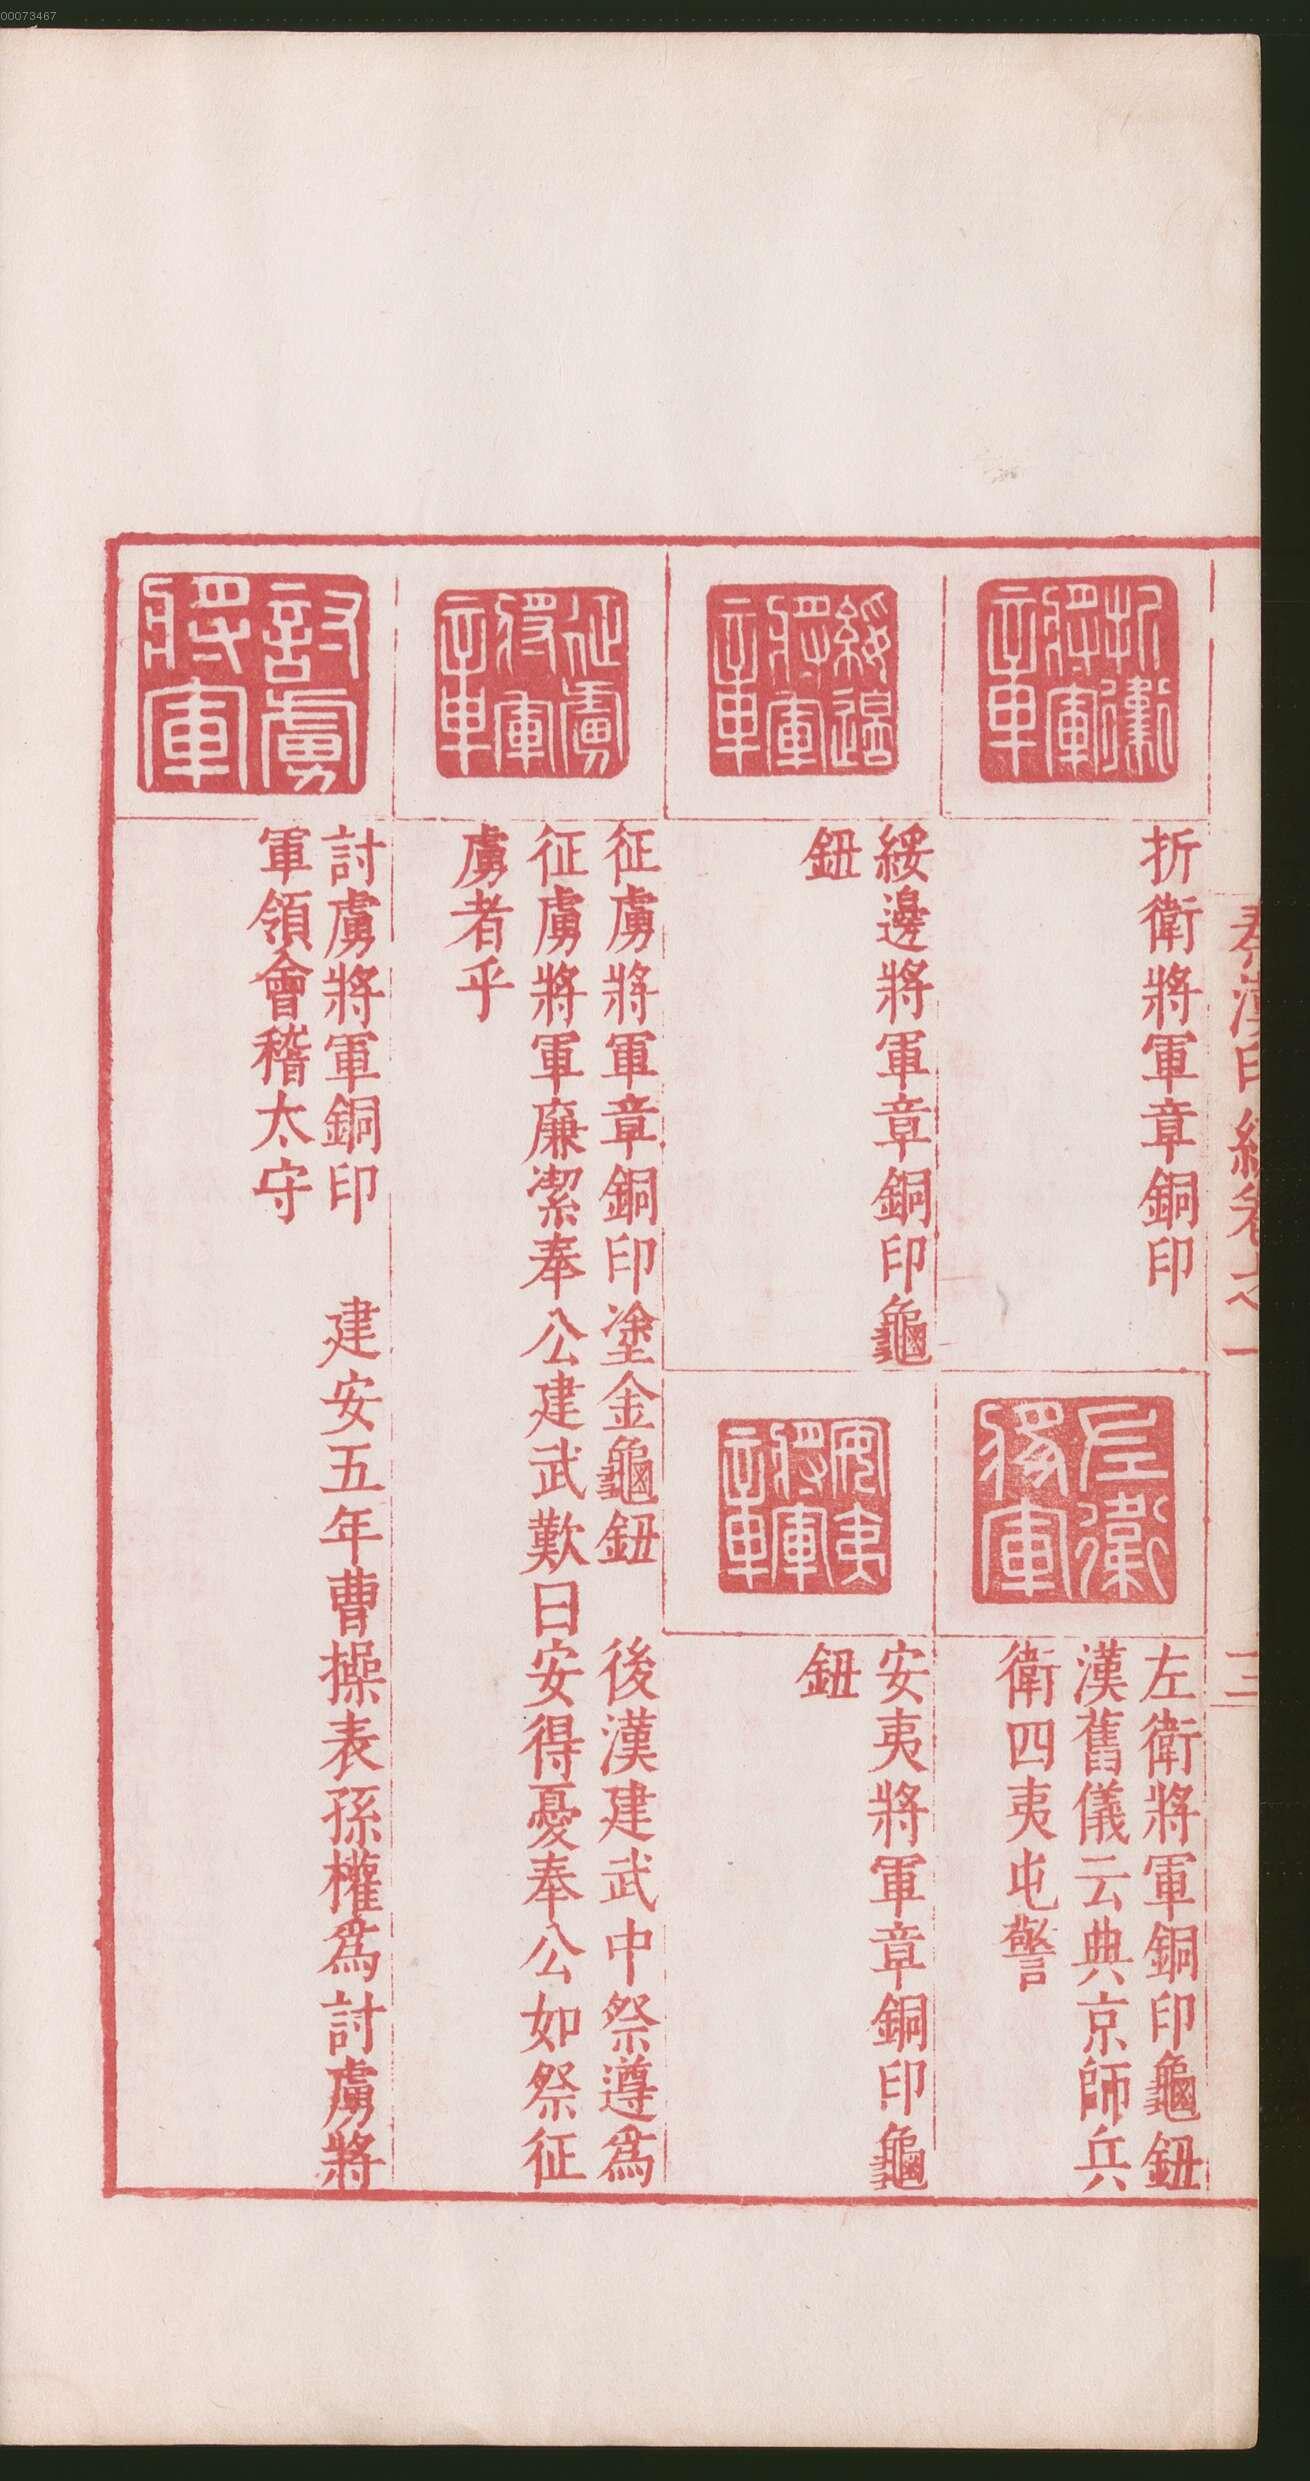 00073467
秦漢印統卷之一
三
折衛將軍章
折衛將軍章銅印
左衛將軍
左衛將軍銅印龜鈕
漢舊儀云典京師兵
衛四夷屯警
綏邊將軍章
綏邊將軍章銅印龜
鈕
安夷將軍章
安夷將軍章銅印龜
鈕
征虜將軍章
征虜將軍章銅印塗金龜鈕　後漢建武中祭遵爲
征虜將軍廉潔奉公建武歎曰安得憂奉公如祭征
虜者乎
討虜將軍
討虜將軍銅印　建安五年曹操表孫權爲討虜將
軍領會稽太守